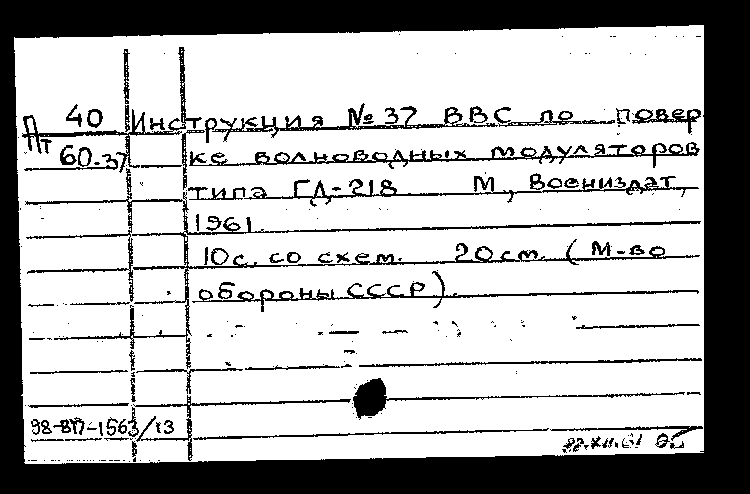 Пт 40 Инструкция № 37 ВВС по повер
60.37 ке волноводных модуляторов
типа ГД-218 М., Воениздат,
1961
10с. со схем. 20см. (М-во
обороны СССР).
98-ВП-1563/13